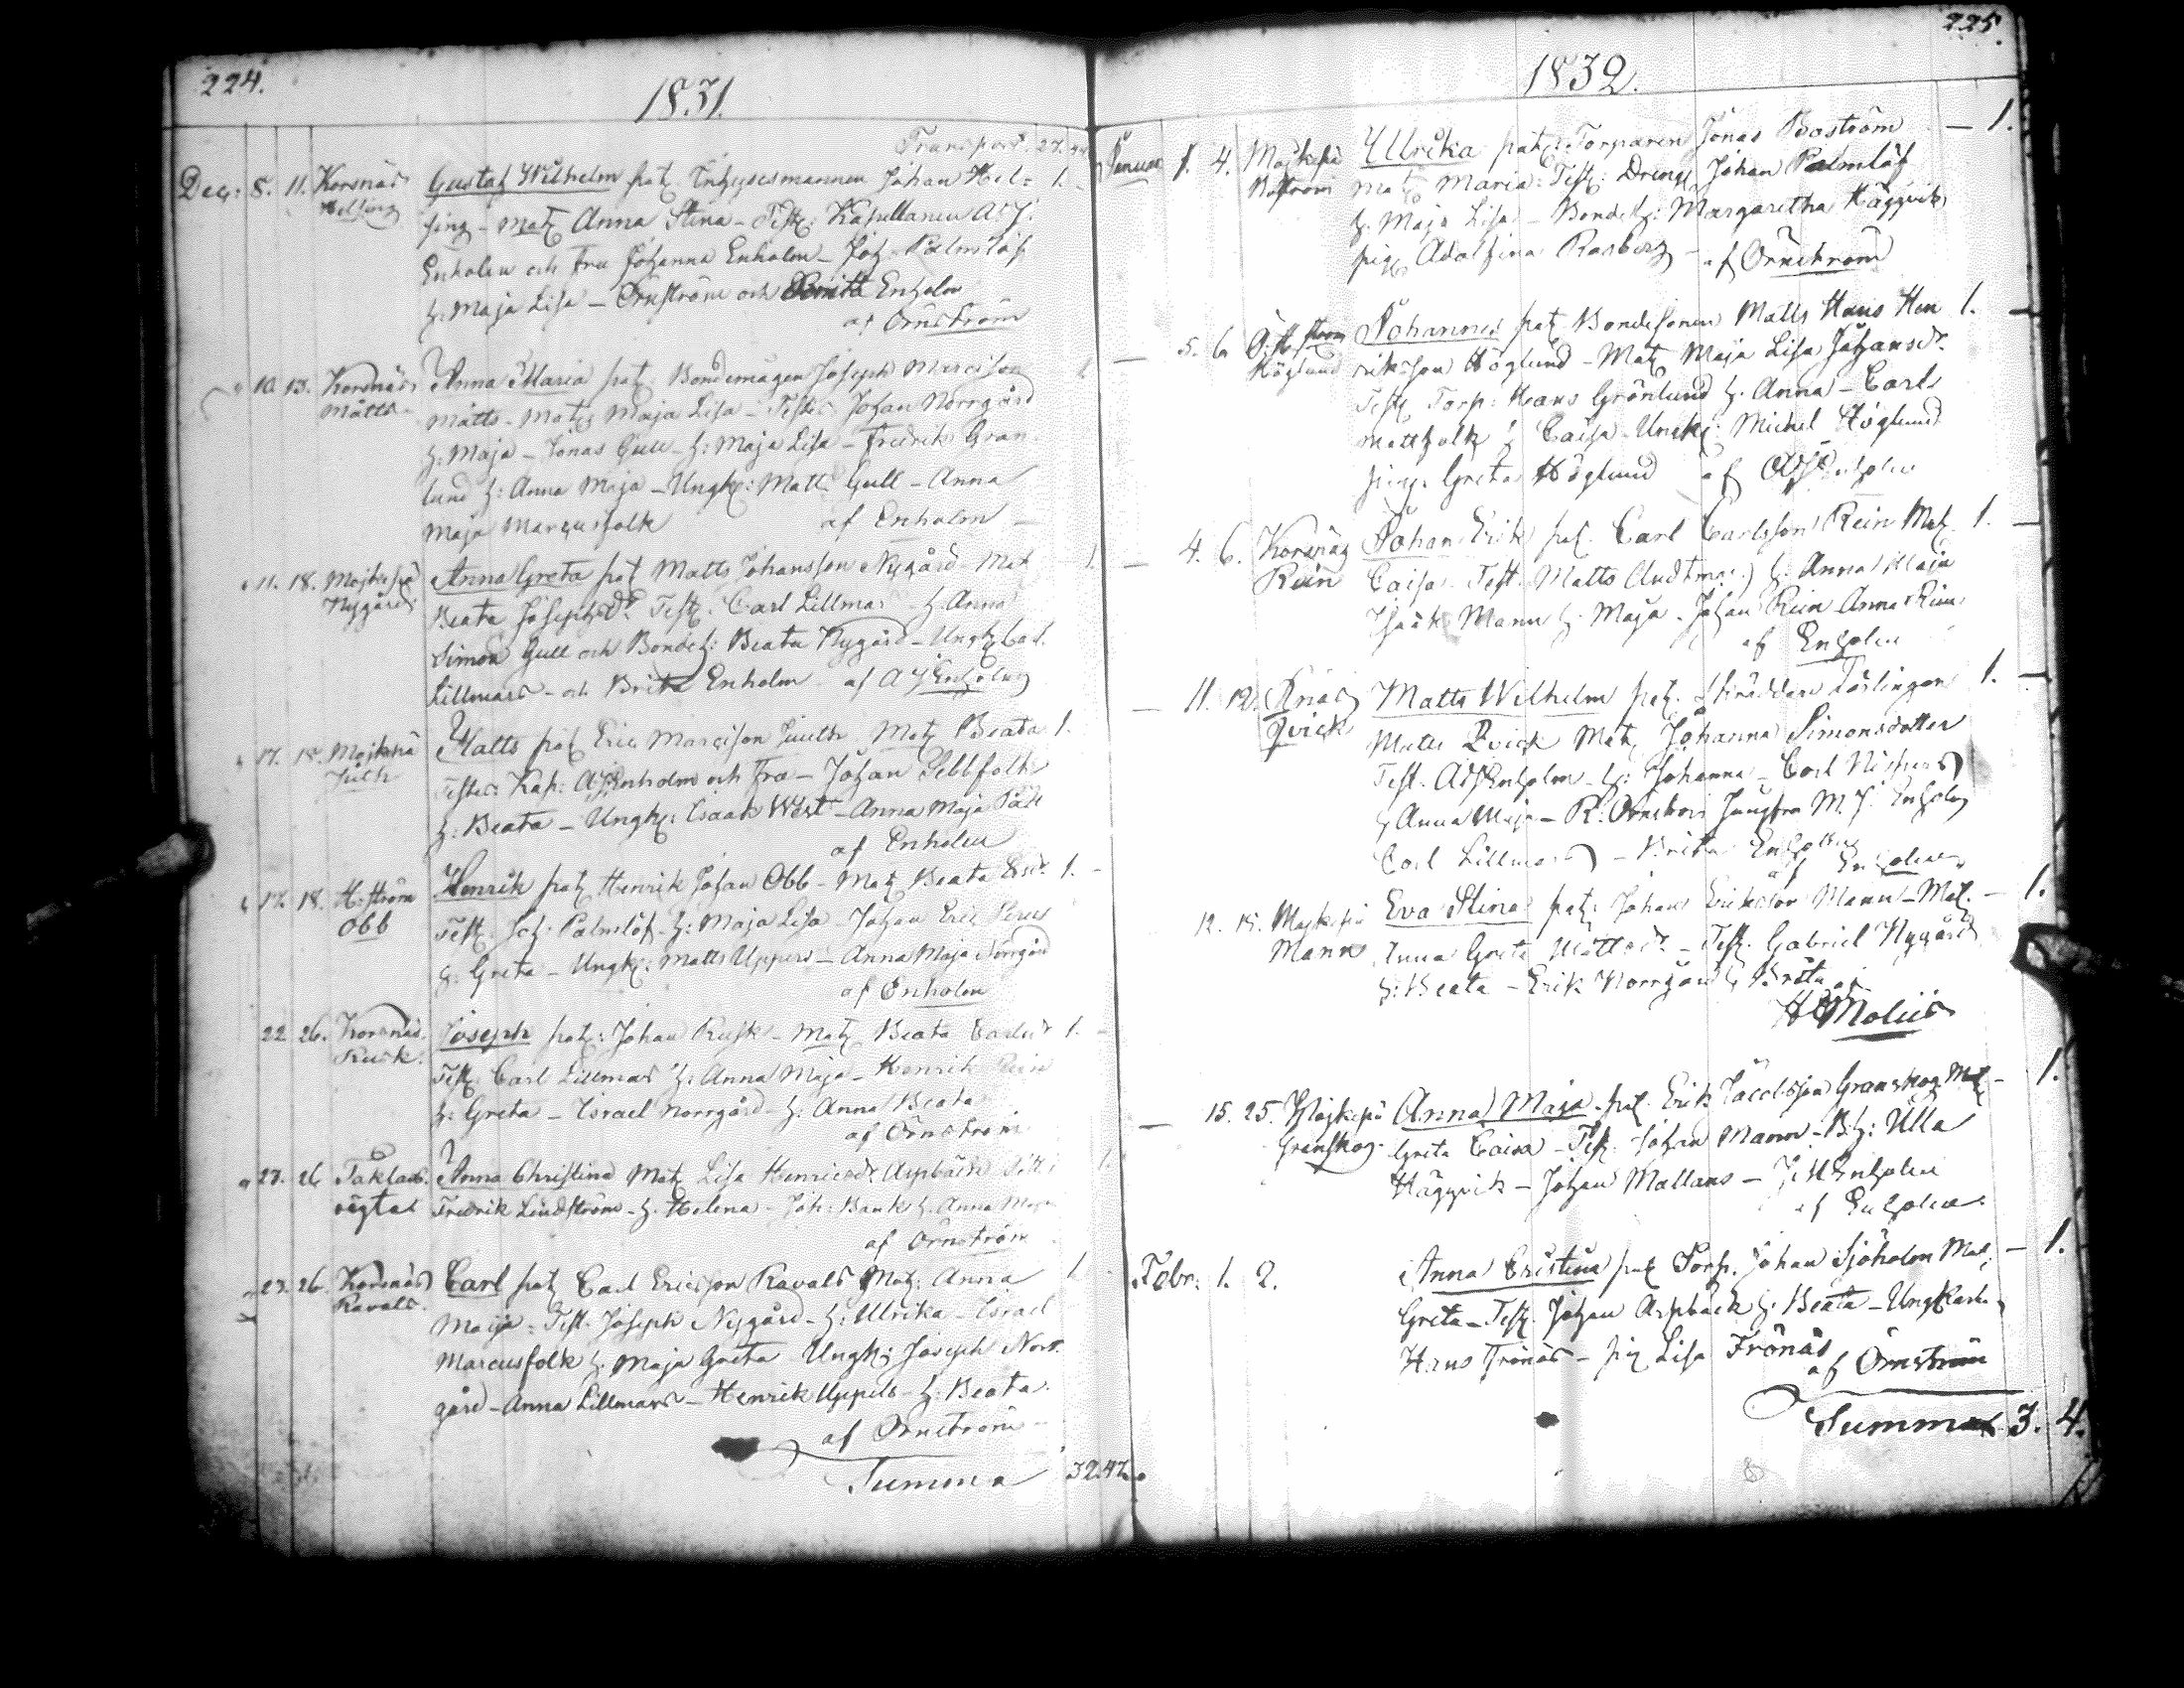 224.
1831.
Transport. 27. 44
Dec: 5. 11. Korsnäs Helsing Gustaf Wilhelm pat Johan Hel= 1.
sing - Mat Anna Stina - Test: Kapellanen A. J.
Enholm och Fru Johanna Enholm - Joh. Palmlöf
h: Maja Lisa - Örnström och Enholm
af Örnström
" 10. 13. Korsnäs Matts Anna Maria pat Bondemågen Joseph Marcisson
Matts - Mat Maja Lisa - Test: Johan Norrgård
h: Maja - Jonas Gull - h: Maja Lisa - Fredrik Gran
lund h: Anna Maja - Ungk: Matts Gull - Anna
Maja Marcusfolk af Enholm
" 11. 18. Nygård Anna Greta pat Matts Johansson Nygård Mat 1.
Beata Josephsdr Test: Carl Lillmas - h Anna
Simon Gull och Bondeh: Beata Nygård - Ungk Carl
Lillmass - och Brita Enholm af A J Enholm
" 17. 18. Juth Matts pat Eric Marcisson Juuth Mat Beata 1.
Test: Kap: A J Enholm och Fru - Johan Sebbfolk
h: Beata - Ungk: Isaak West - Anna Maja
af Enholm
" 17. 18. H:ström Obb Henrik pat Henrik Johan Obb - Mat Beata 1.
Test: Joh: Palmlöf - h: Maja Lisa - Johan Eric
h. Greta - Ungk: Matts Uppers - Anna Maja Norrgård
af Enholm
22 26. Korsnäs Rusk. Joseph pat: Johan Rusk - Mat Beata Carlsdr 1.
Test Carl Lillmas h: Anna Maja - Henrik Rein
h: Greta - Israel Norrgård - h: Anna Beata
af Örnström
" 23. 26 Taklax Anna Christina Mat Lisa Henricsdr Aspbäck Test: 1.
Fredrik Lindström - h. Helena - Joh: Bank h. Anna Maja
af Örnström
" 23. 26. Korsnäs Ravals. Carl pat Carl Ericsson Ravals Mat: Anna 1.
Maija - Test. Joseph Nygård - h: Ulrika - Israel
Marcusfolk h. Maja Greta Ungk: Joseph Norr
gård - Anna Lillmass - Henrik Uppels - h: Beata.
af Örnström
Summa 32. 47.
225.
1832.
1. 4. Ullrika pat: Torparen Jonas Boström - 1.
Mat Maria: Test: Dreng Johan Palmlöf
h. Maja Lisa - Bondeh: Margaretha Häggvik
pig Adolfina Rosberg - af Örnström
- 5. 6. Höglund Johannes pat Bondesonen Matts Hans Hen 1. -
riksson Höglund - Mat Maja Lisa Johansdr.
Test Torp: Hans Grönlund h. Anna - Carl
Mattfolk h Caisa - Ungk: Michel Höglund
pig. Greta Höglund af Enholm
- 4. 6. Korsnäs Rein Johan Erik pat. Carl Carlsson Rein Mat 1. -
Caisa. Test. Matts h. Anna Maja
Isaak Mann h. Maja - Johan Rein Anna Rein
af Enholm
- 11. 12. Qvick Matts Wilhelm pat. Lärlingen 1. -
Matts Qvick Mat Johanna Simonsdotter
Test. A J Enholm - h: Johanna - Carl
h Anna Maja - Jungfru M. J. Enholm
Carl Lillmass - Brita Enholm
af Enholm
12. 15. Mann Eva Stina pat: Johan Eriksson Mann - Mat. - 1.
Anna Greta Mattsdr. - Test. Gabriel Nygård
h: Beata - Erik Norrgård h Brita af
Molis
- 15. 25. Granskog. Anna Maja. pat. Erik Jacobsson Granskog Mat - 1.
Greta Caisa - Test. Johan Mann - B.h: Ulla
Häggvik - Johan Mattans - Enholm
af Enholm
Febr: 1. 2. Anna Cristina pat Torp. Johan Sjöholm Mat: - 1.
Greta - Test. Johan Aspbäck h. Beata - Ungkarl
Hans Frönäs - pig Lisa Frönäs
af Örnström
Summa 3. 4.